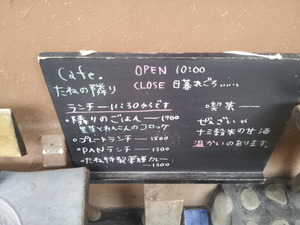 Cafe.
たねの隣り
OPEN 10:00
CLOSE 日暮れごろ……
ランチ―11:30からです
・隣りのごはん ―1900
里芋とれんこんのコロッケ
・プレートランチ ―1500
・PANランチ ―1300
・たね特製薬膳カレー
―1300
・喫茶―
ぜんざい
十三穀米の甘酒
温かいのあります。